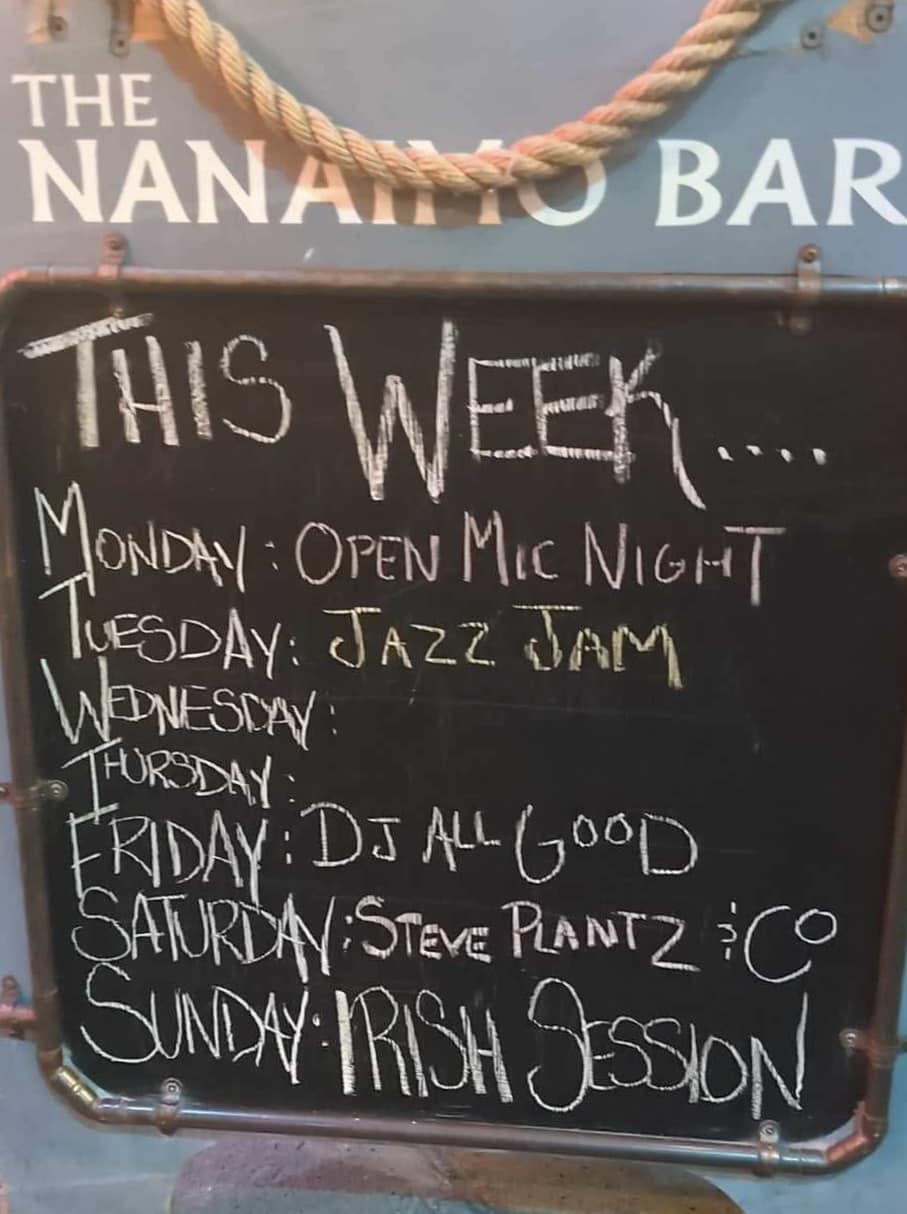 THE
NANAIMO BAR
THIS WEEK....
MONDAY: OPEN MIC NIGHT
TUESDAY: JAZZ JAM
WEDNESDAY:
THURSDAY:
FRIDAY: DJ ALL GOOD
SATURDAY: STEVE PLANTZ & CO
SUNDAY: IRISH SESSION